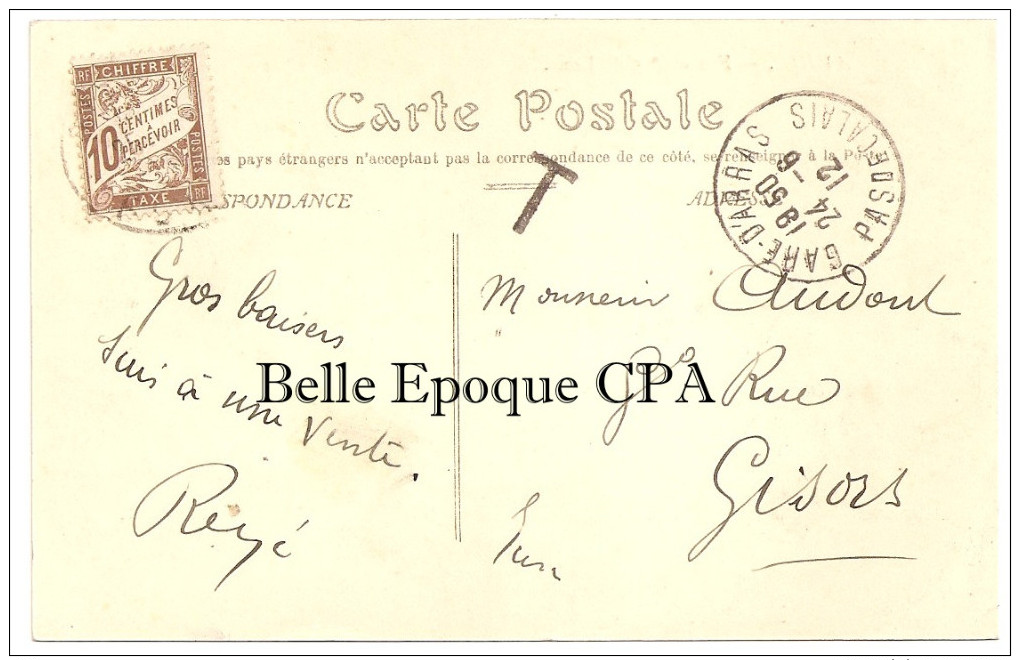 RF CHIFFRE
POSTES
10 CENTIMES
À
PERCEVOIR
POSTES
TAXE RF
Carte Postale
es pays étrangers n'acceptant pas la correspondance de ce côté, se renseigner à la Poste
SPONDANCE
ADRES
T
GARE D'ARRAS PAS DE CALAIS
18 50
24 - 6
12
Gros baisers
Suis à une Vente.
Monsieur Audout
Rue
Gisors
Eure
Belle Epoque CPA